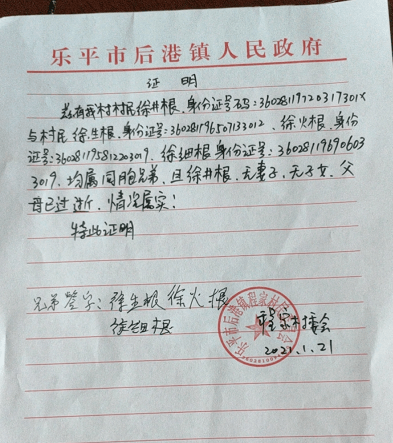 乐平市后港镇人民政府
证 明
兹有我村村民徐井根,身份证号码:36028119720317301X
与村民徐生根,身份证号:360281196507133012、徐火根,身份
证号:360281195812203019、徐细根身份证号:36028119690603
3019、均属同胞兄弟,且徐井根、无妻子、无子女,父
母已过逝,情况属实!
特此证明
兄弟签字:徐生根 徐火根
徐细根
程家村委会
2021.1.21
乐平市后港镇程家村